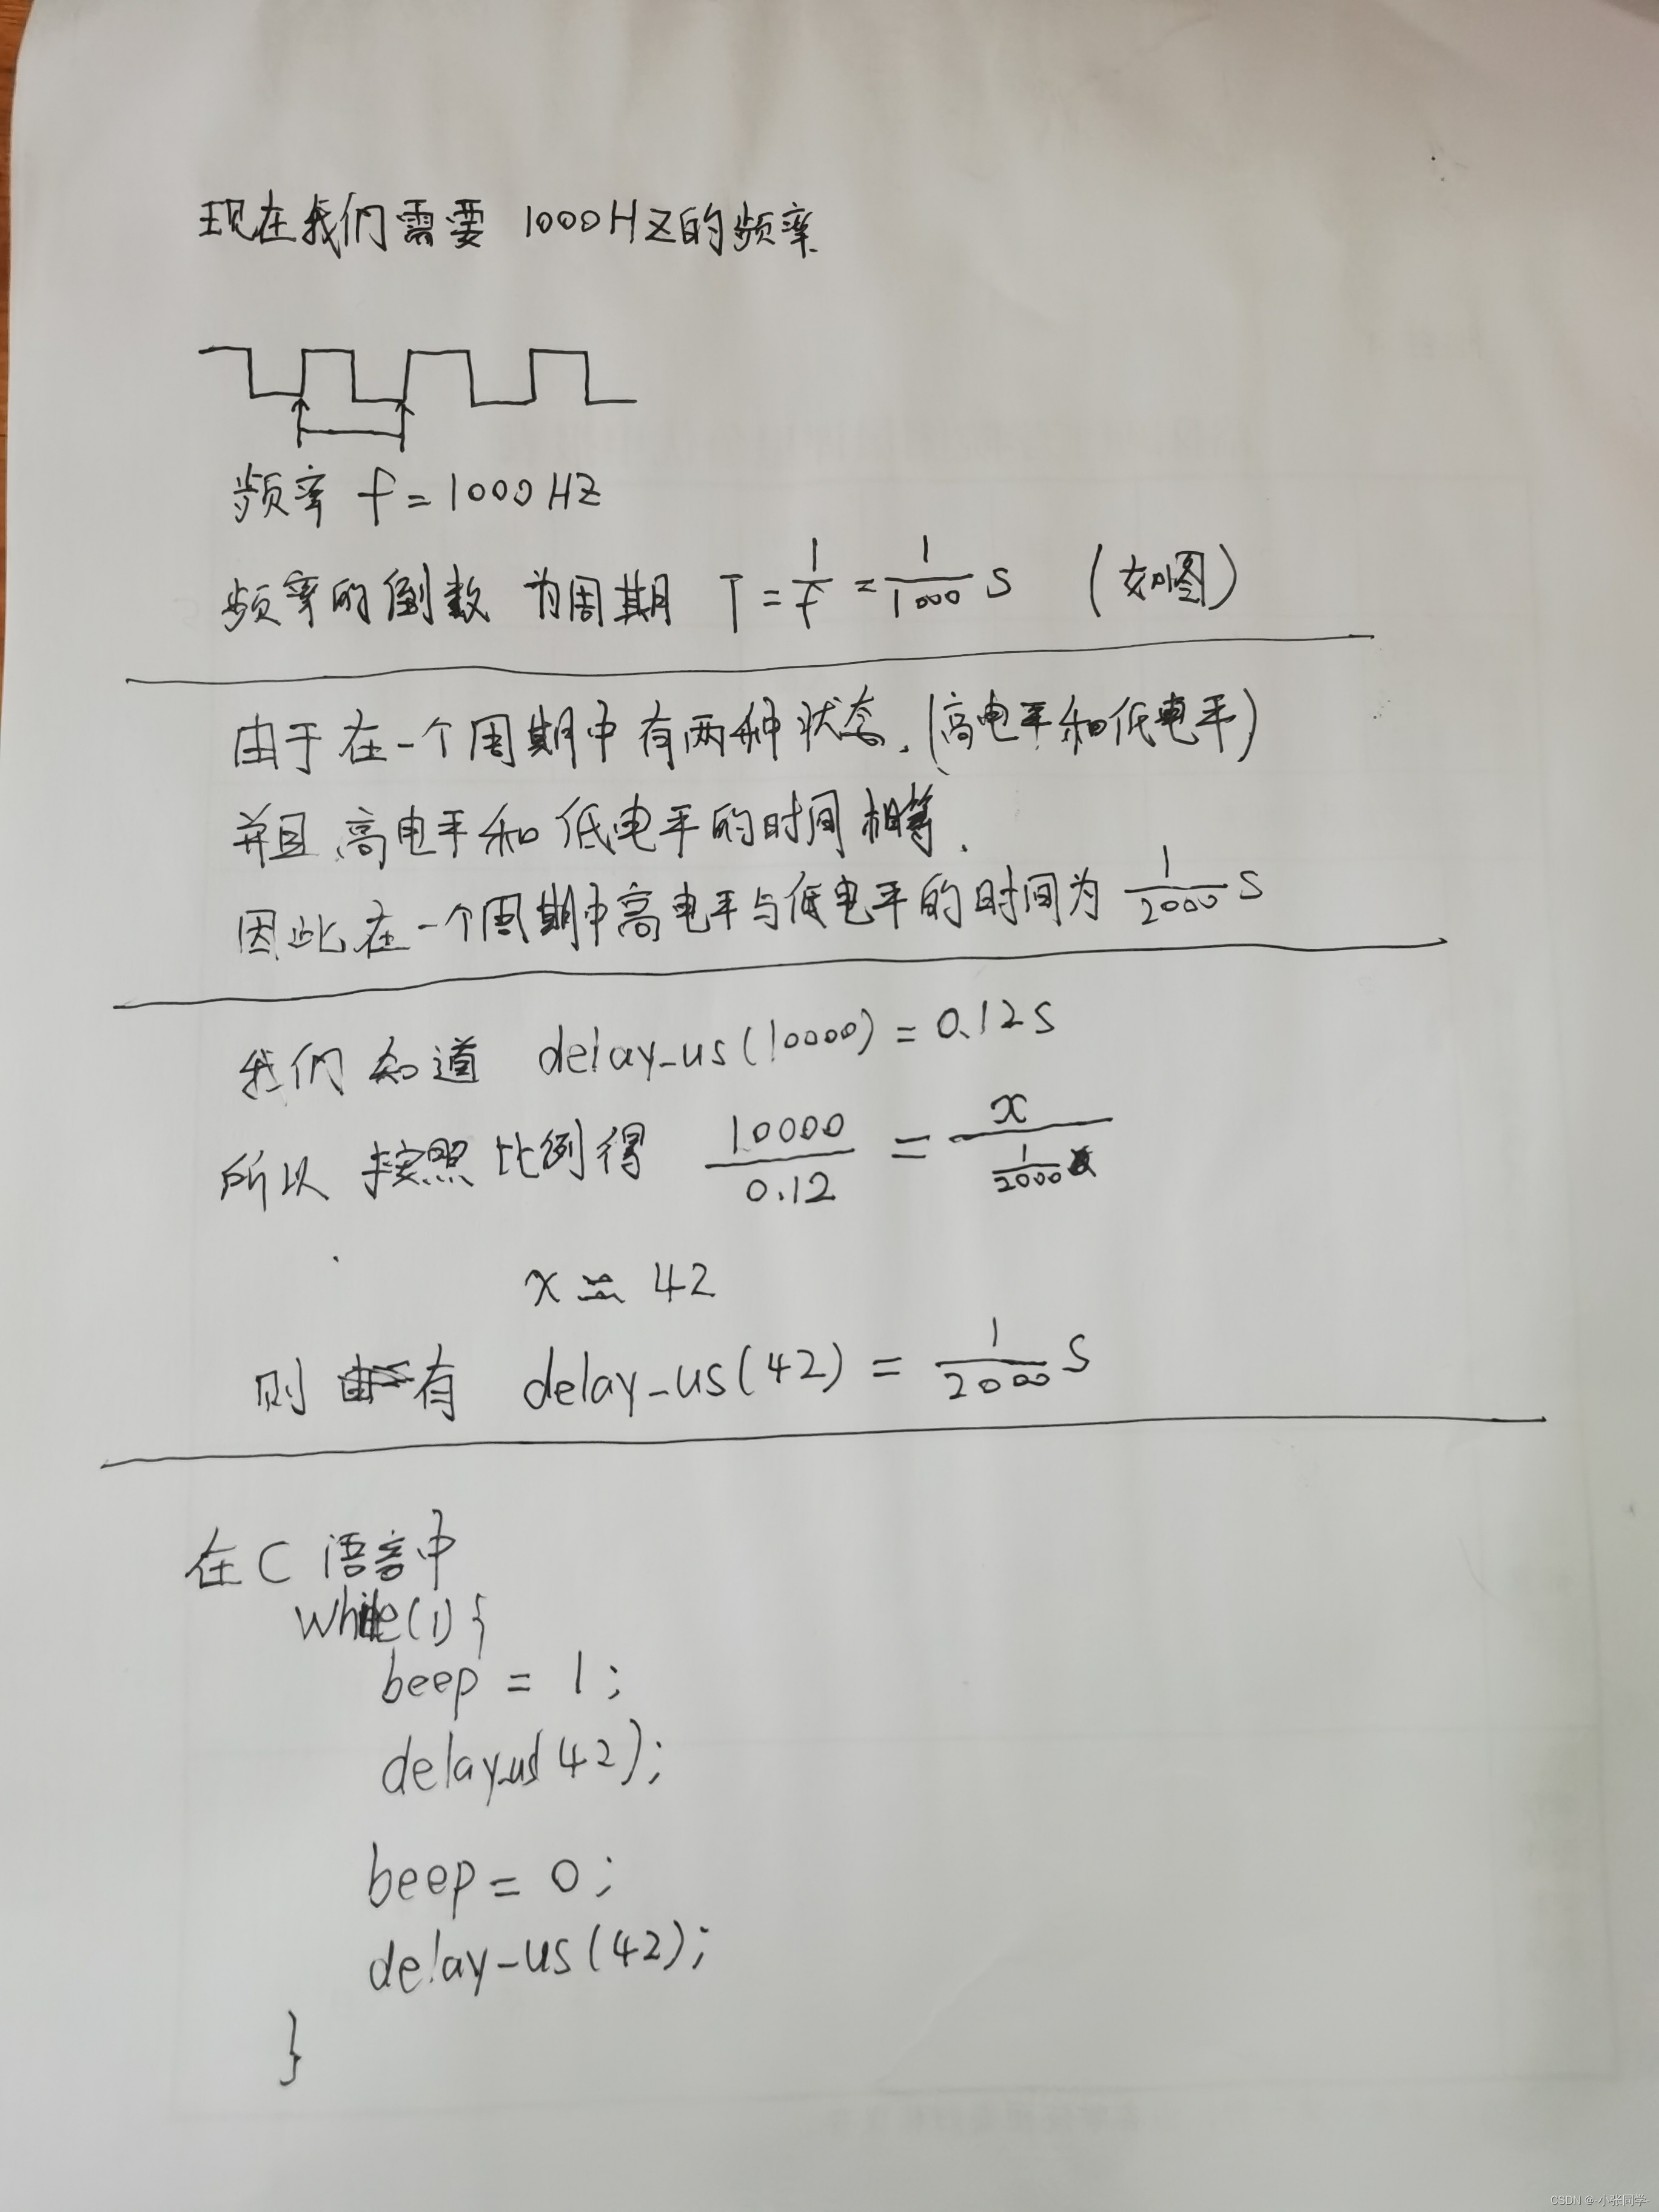 现在我们需要 1000HZ的频率
频率 f=1000HZ
频率的倒数 为周期 T = 1/f = 1/1000 s (如图)
由于在一个周期中有两种状态.(高电平和低电平)
并且高电平和低电平的时间相等.
因此在一个周期中高电平与低电平的时间为 1/2000 s
我们知道 delay-us(10000) = 0.12s
所以按照比例得 10000/0.12 = x/(1/2000)
x ≈ 42
则有 delay-us(42) = 1/2000 s
在C语言中
while(1){
beep = 1;
delay-us(42);
beep = 0;
delay-us(42);
}
CSDN @-小张同学-